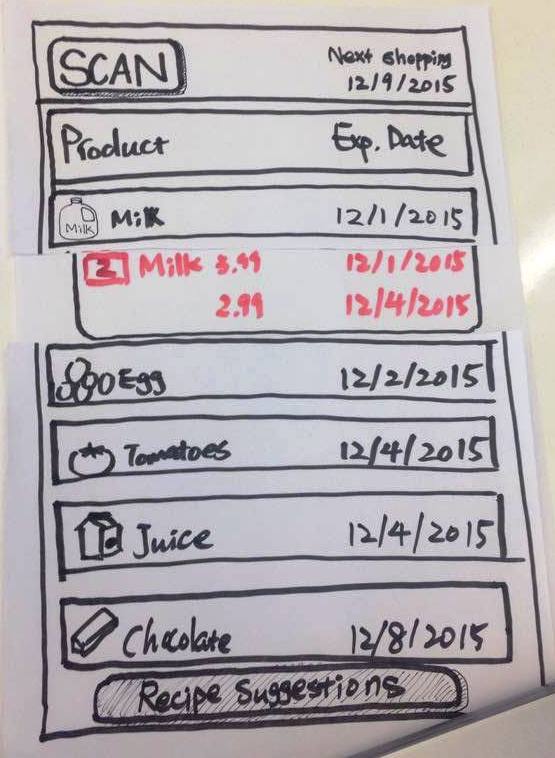 SCAN
Next shopping
12/9/2015
Product Exp. Date
Milk
Milk 12/1/2015
2 Milk 3.99 12/1/2015
2.99 12/4/2015
Egg 12/2/2015
Tomatoes 12/4/2015
Juice 12/4/2015
Chocolate 12/8/2015
Recipe Suggestions